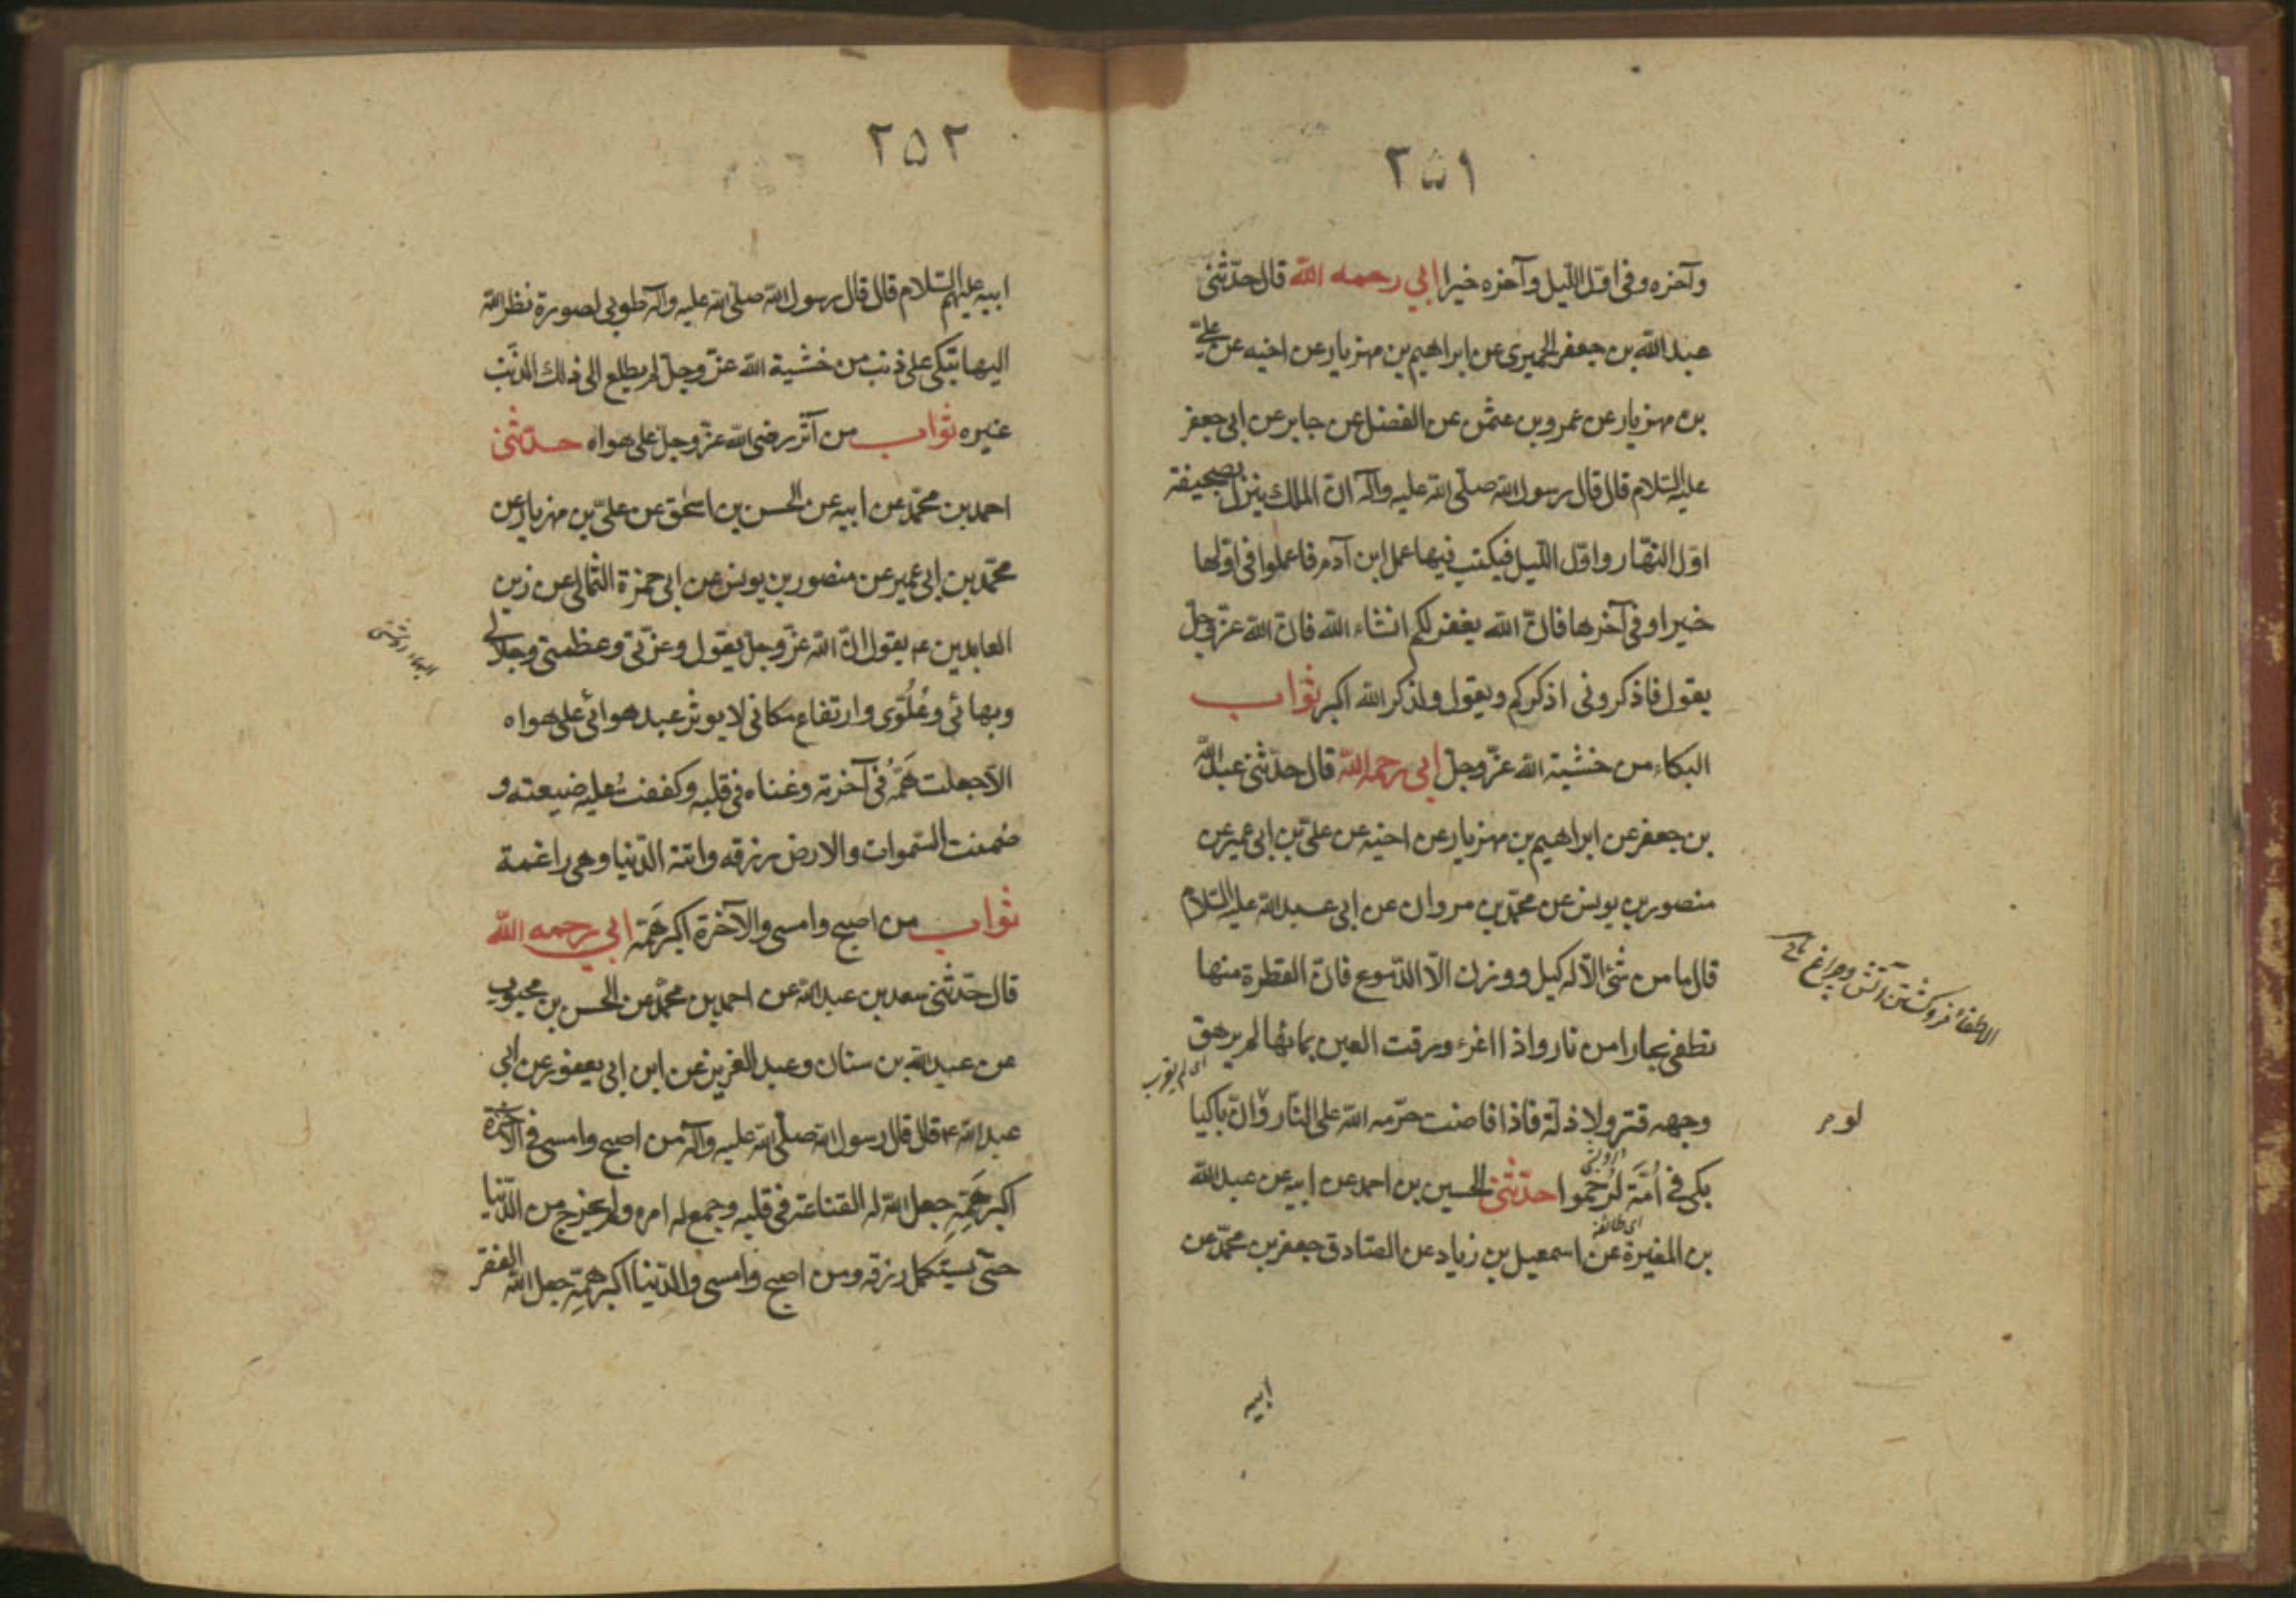 ٢٥١
وآخره وفى اوّل اللّيل وآخره خيرا ابي رحمه الله قال حدّثنى
عبد الله بن جعفر الحميرى عن ابراهيم بن مهزيار عن اخيه عن علىّ
بن مهزيار عن عمرو بن عثمن عن الفضل عن جابر عن ابى جعفر
عليه السّلام قال قال رسول الله صلّى الله عليه وآله انّ الملك ينزل بصحيفة
اوّل النّهار واوّل اللّيل فيكتب فيها عمل ابن آدم فاعملوا فى اوّلها
خيرا وفى آخرها فانّ الله يغفر لكم انشاء الله فانّ الله عزّ وجلّ
يقول فاذكرونى اذكركم ويقول ولذكر الله اكبر ثواب
البكاء من خشية الله عزّ وجلّ ابى رحمه الله قال حدّثنى عبد الله
بن جعفر عن ابراهيم بن مهزيار عن اخيه عن علىّ بن ابى عمير عن
منصور بن يونس عن محمّد بن مروان عن ابى عبد الله عليه السّلام
قال ما من شئ الّا له كيل ووزن الّا الدّموع فانّ القطرة منها
تطفى بحارا من نار واذا اغرء ورقت العين بمائها لم يرهق
وجهه قتر ولا ذلّة فاذا فاضت حرّمه الله على النّار وانّ باكيا
بكى فى اُمّة لرُحموا حدّثنى الحسين بن احمد عن ابيه عن عبد الله
اى طائفة
بن المغيرة عن اسمعيل بن زياد عن الصّادق جعفر بن محمّد عن
ابيه
الاطفاء فروكشتن آتش وچراغ
لو
٢٥٢
ابيه عليهم السّلام قال قال رسول الله صلّى الله عليه وآله طوبى لصورة نظر الله
اليها تبكى على ذنب من خشية الله عزّ وجلّ لم يطلع الى ذلك الذّنب
غيره ثواب من آثر رضى الله عزّ وجلّ على هواه حدّثنى
احمد بن محمّد عن ابيه عن الحسن بن اسحٰق عن علىّ بن مهزيار عن
محمّد بن ابى عمير عن منصور بن يونس عن ابى حمزة الثّمالى عن زين
العابدين ع يقول انّ الله عزّ وجلّ يقول وعزّتى وعظمتى وجلالى
وبهائى وعُلُوّى وارتفاع مكانى لا يوثر عبد هوائى على هواه
الّا جعلت همّه فى آخرته وغناه فى قلبه وكففت عليه ضيعته و
ضمنت السّموات والارض رزقه واتته الدّنيا وهى راغمة
ثواب من اصبح وامسى والآخرة اكبر همّه ابي رحمه الله
قال حدّثنى سعد بن عبد الله عن احمد بن محمّد عن الحسن بن محبوب
عن عبد الله بن سنان وعبد العزيز عن ابن ابى يعفور عن ابى
عبد الله ع قال قال رسول الله صلّى الله عليه وآله من اصبح وامسى فى الآخرة
اكبر همّه جعل الله له القناعة فى قلبه وجمع له امره ولم يخرج من الدّنيا
حتّى يستكمل رزقه ومن اصبح وامسى والدّنيا اكبر همّه جعل الله الفقر